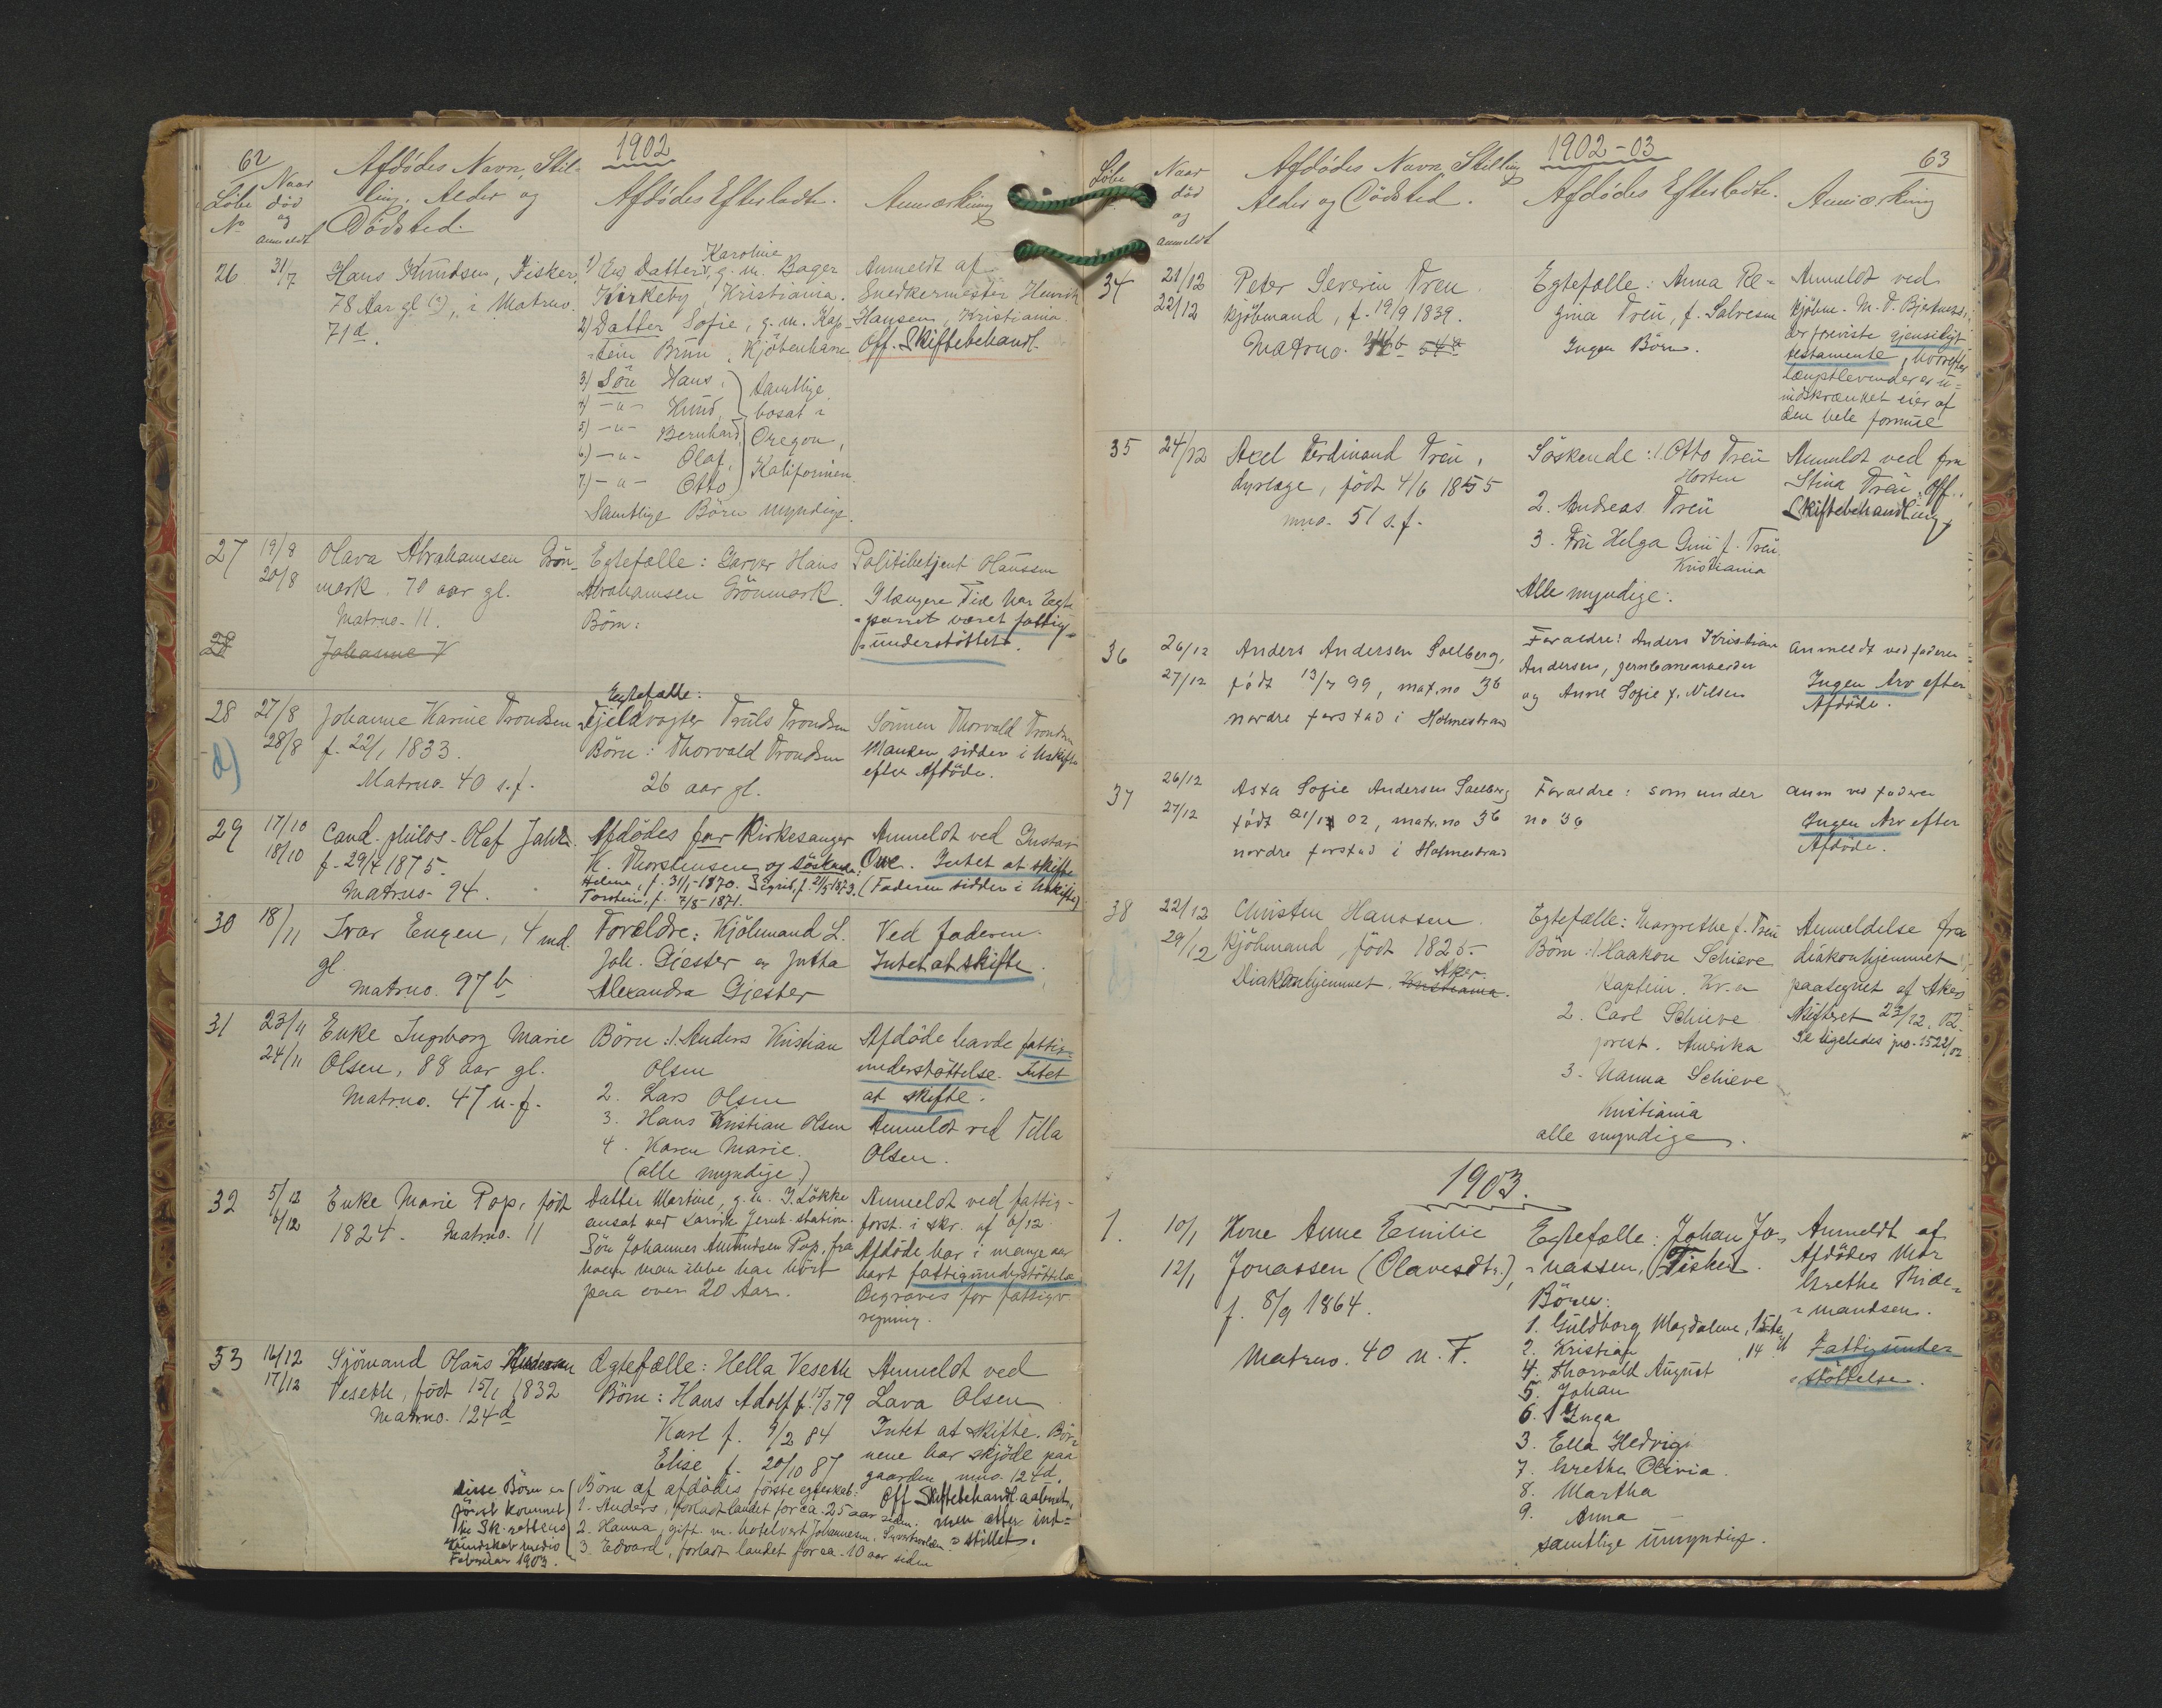 62
1902
Løbe No
Naar død og anmeldt
Afdødes Navn, Stilling, Alder og Dødsted.
Afdødes Efterladte.
Anmærkning
26
31/7
Hans Knudsen, Fisker,
78 Aar gl (?), i Matrno.
71d.
1) En Datter, Karoline, g. m. Bager
Kirkeby, Kristiania.
2) Datter Sofie, g. m. Kap-
tein Brun, Kjöbenhavn
3) Sön Hans,
4) -"- Knud,
5) -"- Bernhard,
6) -"- Olaf,
7) -"- Otto
Samtlige
bosat i
Oregon,
Kalifornien.
Samtlige Börn myndige.
Anmeldt af
Snedkermester Henrik
Hansen, Kristiania.
Off. Skiftebehandl.
27
19/8
20/8
Olava Abrahamsen Grön-
mark. 70 aar gl.
Matrno. 11.
Egtefælle: Garver Hans
Abrahamsen Grönmark.
Börn:
Politibetjent Olaussen
I længere Tid har Egte-
parret været fattig-
understöttet.
28
Johanne K
28
27/8
28/8
Johanne Karine Trondsen
f. 22/1 1833.
Matrno. 40 s.f.
Egtefælle:
Fjeldvogter Truls Trondsen
Börn: Thorvald Trondsen
26 aar gl.
Sönnen Thorvald Trondsen
Manden sidder i Uskifte
efter Afdöde.
29
17/10
18/10
Cand. philos. Olaf Jahn
f. 29/4 1875.
Matrno. 94.
Afdödes far Kirkesanger
K. Thorstensen og söskende:
Helena, f. 31/1-1870. Sigrid, f. 21/5 1873.
Torstein, f. 7/8-1871.
Anmeldt ved Gustav
Owe. Intet at skifte
(Faderen sidder i Uskifte)
30
18/11
Ivar Eugen, 4 md.
gl
Matrno. 97b
Forældre: Kjöbmand L.
Joh. Gjester og Jutta
Alexandra Gjester
Ved faderen.
Intet at skifte.
31
23/11
24/11
Enke Ingeborg Marie
Olsen, 88 aar gl.
Matrno. 47 u.f.
Börn: 1. Anders Kristian
Olsen
2. Lars Olsen
3. Hans Kristian Olsen
4. Karen Marie.
(alle myndige)
Afdöde havde fattig-
understöttelse. Intet
at skifte.
Anmeldt ved Tilla
Olsen.
32
5/12
6/12
Enke Marie Pop, födt
1824. Matrno. 11
Datter Martine, g. m. J. Lökke
ansat ved Larvik Jernb. station.
Sön Johannes Amundsen Pop, fra
hvem man ikke har hört
paa over 20 Aar.
Anmeldt ved fattig-
forst. i skr. af 6/12.
Afdöde har i mange aar
havt fattigunderstöttelse
Begraves for fattigv.
regning.
33
16/12
17/12
Sjömand Olaus Andersen
Veseth, födt 15/1 1832
Matrno. 124d
Ægtefælle: Hella Veseth
Börn: Hans Adolf f. 15/3 79
Karl f. 9/2 84
Elise f. 20/10 87
Börn af afdödes förste egteskab:
1. Anders, forladt landet for ca. 25 aar siden.
2. Hanna, gift. m. hotelvert Johannesen,
3. Edvard, forladt landet for ca. 10 aar siden
Disse Börn er
först kommet
til Sk. rettens
Kundskab medio
Februar 1903.
Anmeldt ved
Lava Olsen
Intet at skifte. Bör-
nene har skjöde paa
gaarden mno. 124d.
Off Skiftebehandl. aabnet,
men atter ind-
stillet.
1902-03
63
Løbe
Naar død og anmeldt
Afdødes Navn, Stilling
Alder og Dødsted.
Afdødes Efterladte.
Anmærkning
34
21/12
22/12
Peter Severin Treu
Kjöbmand, f. 19/9 1839.
Matrno.
Egtefælle: Anna Re-
gina Treu, f. Salvesen
Ingen Börn.
Anmeldt ved
Kjöbm. M. T. Bjertnæs,
der foreviste gjensidigt
testamente, hvorefter
længstlevende er u-
indskrænket eier af
den hele formue
35
24/12
Axel Ferdinand Treu,
dyrlæge, födt 4/6 1855
mno. 51 s.f.
Söskende: 1. Otto Treu
Horten
2. Andreas Treu
3. Fru Helga Gnu f. Treu
Kristiania
Alle myndige.
Anmeldt ved fru
Stina Treu. Off.
Skiftebehandling
36
26/12
27/12
Anders Andersen Solberg,
födt 13/7 99, mat.no 36
nordre forstad i Holmestrand
Foraeldre: Anders Kristian
Andersen, jernbanearbeider
og Anne Sofie f. Nilsen
anmeldt ved faderen
Ingen Arv efter
Afdöde.
37
26/12
27/12
Asta Sofie Andersen Solberg
födt 21/12 02, matr.no 36
nordre forstad i Holmestrand
Foraeldre: som under
no 36
anm ved faderen
Ingen Arv efter
Afdöde.
38
22/12
29/12
Christen Hanssen
Kjöbmand, födt 1825.
Diakonhjemmet, Kristiania. Aker.
Egtefælle: Margrethe f. Treu
Börn: 1. Haakon Schieve
Kaptein. Kr.a
2. Carl Schieve
prest. Amerika
3. Nanna Schieve
Kristiania
alle myndige.
Anmeldelse fra
diakonhjemmet
paategnet af Aker
Skifteret 23/12. 02.
Se ligeledes jno. 1522/02
1903.
1.
10/1
12/1
Kone Anne Emilie
Jonassen (Olavesdtr.),
f. 8/9 1864.
Matrno. 40 n. F.
Egtefælle: Johan Jo-
nassen, Fisker.
Börn:
1. Guldborg Magdalene, 15
2. Kristian, 14
4. Thorvald August
5. Johan
6. Inga
3. Ella Hedvig
7. Grethe Olivia.
8. Martha
9. Anna
samtlige umyndige.
Anmeldt af
Afdödes Mor
Grethe
mandsen.
Fattigunder-
stöttelse.